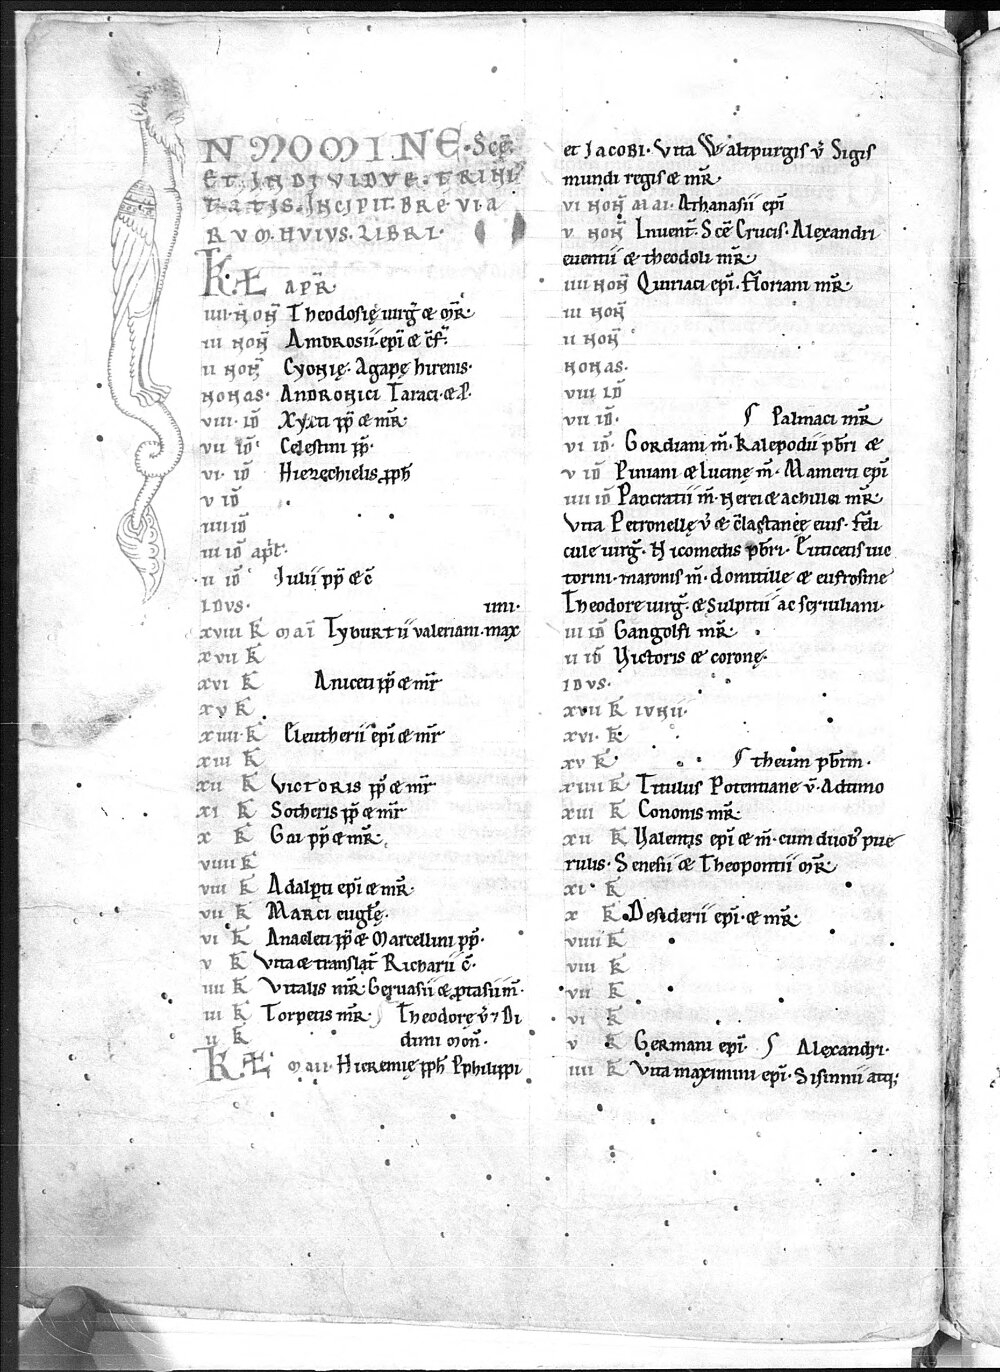 N NOMINE · Scē
ET INDIVIDVE · TRINI
TATIS · INCIPIT BREVIA
RVM · HVIVS · LIBRI ·
KƎ APR̄
IIII · NON̄ Theodosię uirḡ & m̄R
III NON̄ Ambrosii epī & c̄f
II NON̄ Cyonię · Agapę hirenis ·
NONAS · ANDRONICI Taraci · & P ·
VIII · ID̄ Xyxti pp̄ & mR̄
VII ID̄ Celestini pp̄ ·
VI · ID̄ Hiezechielis pph̄
V ID̄
IIII ID̄
III ID̄ apł ·
II ID̄ Iulii pp̄ & c̄
IDVS · imi ·
XVIII K MAI Tyburtii valeriani · max
XVII K
XVI K Aniceti pp̄ & mr̄
XV K
XIIII K Eleutherii epī & mr̄
XIII K
XII K VICTORIS pp̄ & mr̄
XI K Sotheris pp̄ & mr̄
X K Gai pp̄ & mR̄
VIIII K
VIII K Adalpti epī & mR̄
VII K MARCI eugłę ·
VI K Anacleti pp̄ & Marcellini pp̄ ·
V K Vita & translat̄ Richarii c̄ ·
IIII K Vitalis mR̄ Geruasii & ptasii m̄ ·
III K Torpetis mR̄ · Theodorę v̄ 7 Di
II K dimi mon̄ ·
KƎ MAII · Hieremię pph̄ Pphilippi
et JACOBI · Vita Waltpurgis v̄ Sigis
mundi regis & mR̄
VI NON̄ MAI · Athanasii epī
V NON̄ Inuent̄ · Scē Crucis · Alexandri
euentii & theodoli mR̄
IIII NON̄ Quiriaci epī · floriani mR̄
III NON̄
II NON̄
NONAS ·
VIII ID̄
VII ID̄ · Palmaci mR̄
VI ID̄ · Gordiani m̄ · Kalepodii pb̄ri &
V ID̄ Piniani & lucinę m̄ · Mamerti epī
IIII ID̄ Pancratii m̄ · Nerei & achillei mR̄
Vita Petronellę v̄ & eius · feli
cule uirḡ · Nicomedis pb̄ri · Euticetis uic
torini · maronis m̄ · domitille & eufrosine
Theodore uirḡ · & sulpitii ac seruiliani ·
III ID̄ Gangolfi mR̄
II ID̄ Victoris & coronę ·
IDVS ·
XVII K IVNII ·
XVI · K
XV K theum pb̄rm ·
XIIII K Titulus Potentiane v̄ · Adtimo
XIII K Cononis mR̄
XII K Valentis epī & m̄ · cum duob; pue
rulis · Senesii & Theopontii mR̄
XI · K
X K Desiderii epī · & mR̄
VIIII K
VIII K
VII K
VI K
V K Germani epī · Alexandri ·
IIII K Vita maximini epī · Sisinnii atq;